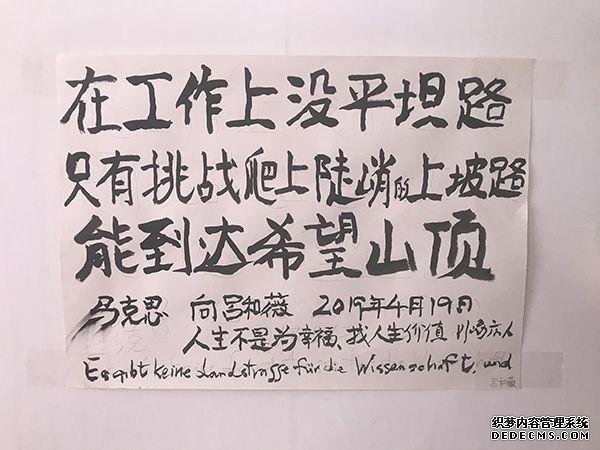 在工作上没平坦路
只有挑战爬上陡峭的上坡路
能到达希望山顶
马克思 向吕和薇 2019年4月19日
人生不是为幸福,找人生价值 川崎庆人
Es gibt keine Landstrasse für die Wissenschaft, und
吕和薇
织梦内容管理系统
DEDECMS.COM